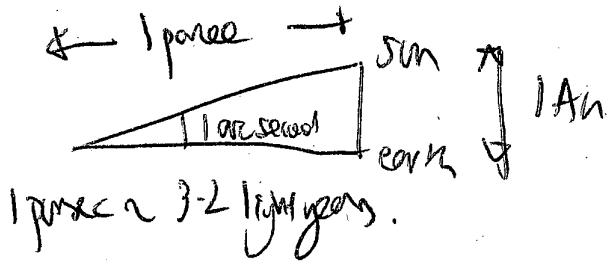 1 parsec
sun
1 arcsecond
1 Au
earth
1 parsec ~ 3-2 light years.